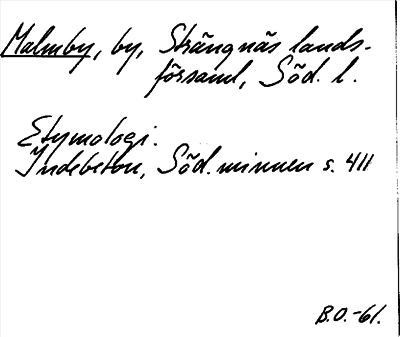 Malmby, by, Strängnäs lands-
församl, Söd. l.
Etymologi.
Indebetou, Söd. minnen s. 411
B.O.-61.